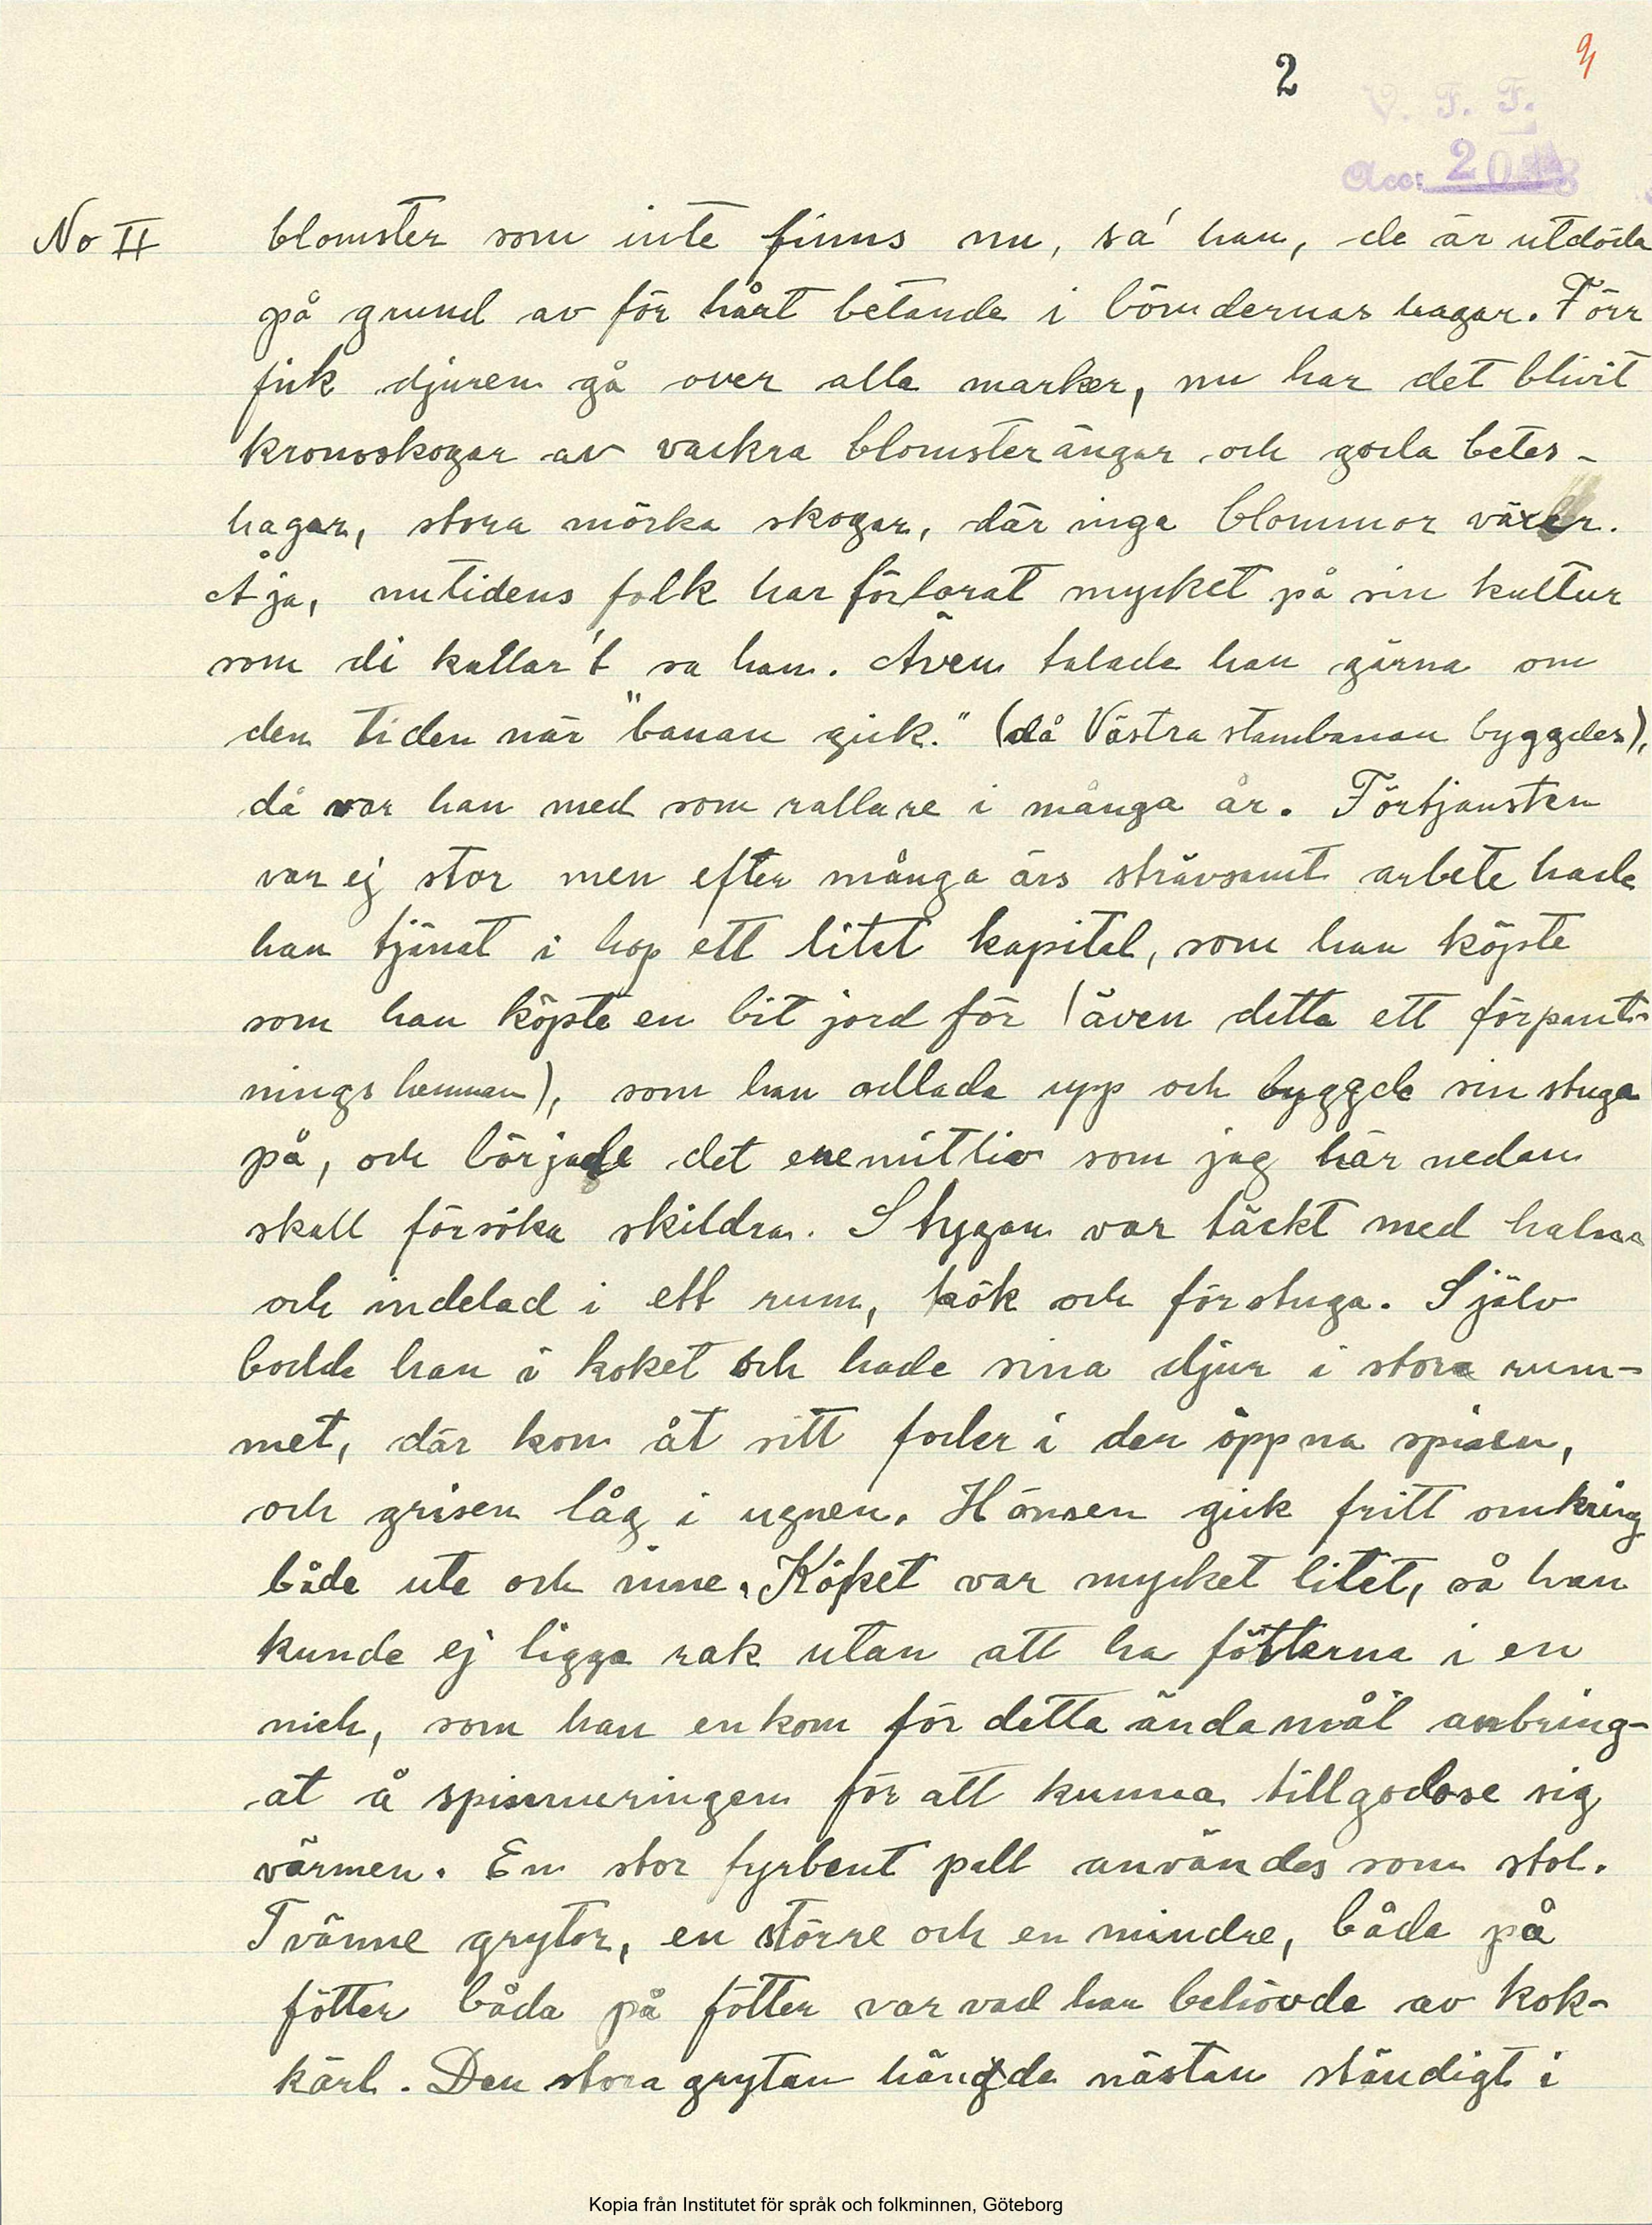 2
V. F. F.
Acc:
No II
blomster som inte finns nu, sa' han, de är utdöda
på grund av för hårt betande i böndernas hagar. Förr
fick djuren gå over alla marker, nu har det blivit
kronoskogar av vackra blomsterängar och goda betes-
hagar, stora mörka skogar, där inga blommor växer.
Å ja, nutidens folk har förlorat mycket på sin kultur
som di kallar't sa han. Även talade han gärna om
den tiden när "banan gick." (då Västra stambanan byggdes),
då var han med som rallare i många år. Förtjansten
var ej stor men efter många års strävsamt arbete hade
han tjänat i hop ett litet kapital, som han köpte
som han köpte en bit jord för (även detta ett förpant-
nings hemman), som han odlade upp och byggde sin stuga
på, och började det eremitliv som jag här nedan
skall försöka skildra. Stugan var täckt med halm
och indelad i ett rum, kök och förstuga. Själv
bodde han i koket och hade sina djur i stora rum-
met, där kon åt sitt foder i den öppna spisen,
och grisen låg i ugnen. Hönsen gick fritt omkring
både ute och inne. Köket var mycket litet, så han
kunde ej ligga rak utan att ha fötterna i en
nich, som han enkom för detta ändamål anbring-
at å spismuringen för att kunna tillgodose sig
värmen. En stor fyrbent pall användes som stol.
Tvänne grytor, en större och en mindre, båda på
fötter båda på fötter var vad han behövde av kok-
kärl. Den stora grytan hängde nästan ständigt i
Kopia från Institutet för språk och folkminnen, Göteborg